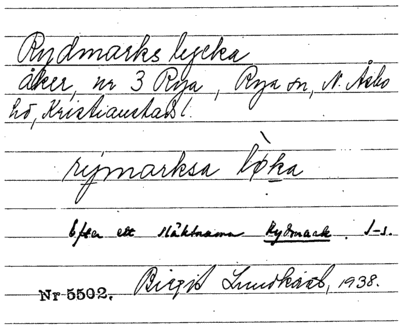 Rydmarks lycka
åker, nr 3 Rya, Rya sn, N. Åsbo
hd, Kristianstads l.
rymarksa lø̀ka
Efter ett släktnamn Rydmark. I-s.
Nr 5502. Birgit Lundkvist, 1938.